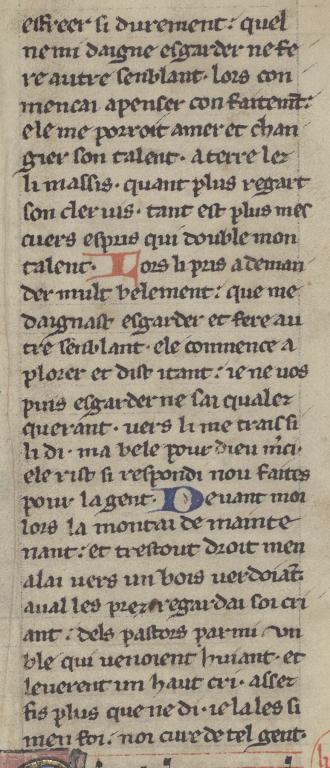 esfreer si durement: quel
ne mi daigne esgarder ne fe
re autre senblant. lors con
mencai a penser con faitement:
ele me porroit amer et chan
gier son talent. a terre lez
li massis. quant plus regart
son cler vis. tant est plus mes
cuers espris qui double mon
talent. Lors li pris a deman
der mult belement: que me
daignast esgarder et fere au
tre senblant. ele commence a
plorer et dist itant: ie ne vos
puis esgarder ne sai qualez
querant. vers li me traissi
li di. ma bele pour dieu m'ci.
ele rist si respondi nou faites
pour la gent. Devant moi
lors la montai de mainte
nant: et trestout droit men
alai vers un bois verdoiant.
aval les prez regardai soi cri
ant: dels pastors parmi un
ble qui venoient huiant. et
leverent un haut cri. assez
fis plus que ne di. ie la les si
men foi. noi cure de tel gent.